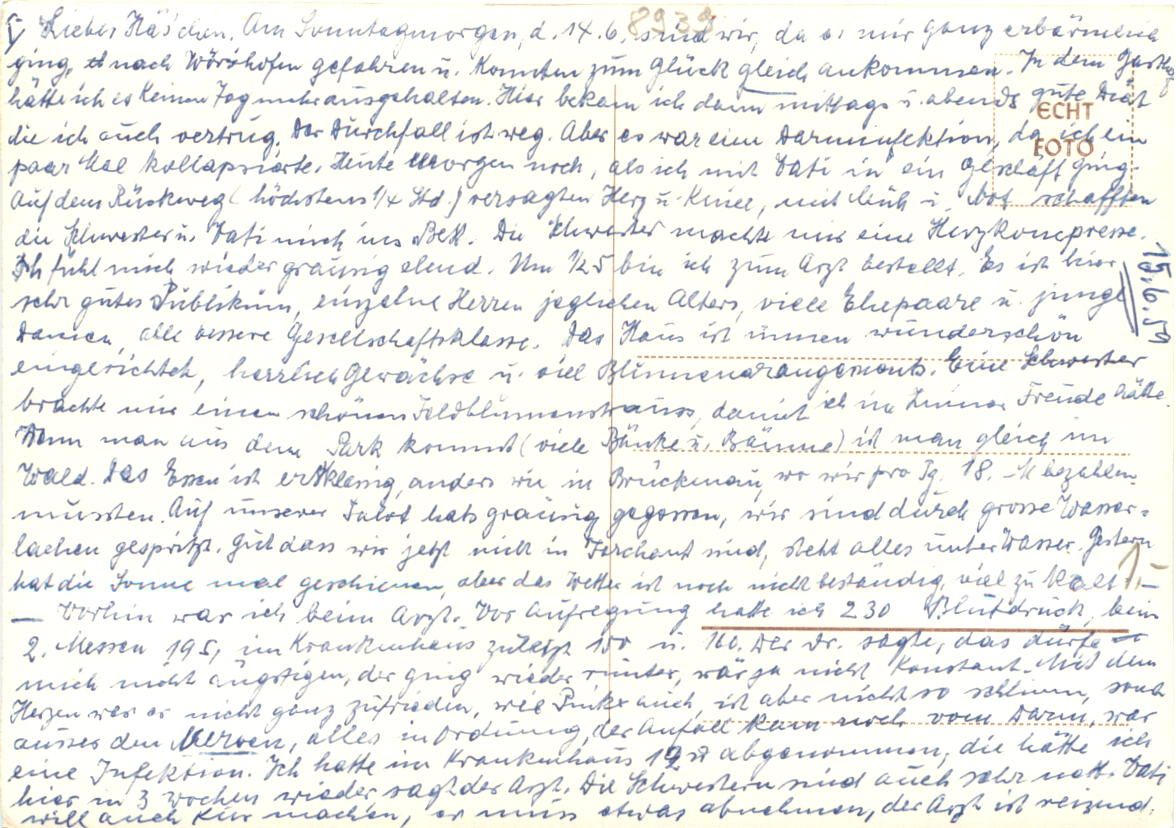 8939
Liebes Häschen. Am Sonntagmorgen, d. 14.6. sind wir, da es mir ganz erbärmlich
ging, nach Wörishofen gefahren u. konnten zum Glück gleich ankommen. In dem
hätte ich es keinen Tag mehr ausgehalten. Hier bekam ich dann mittags u. abends gute Diät
die ich auch vertrug. Der Durchfall ist weg. Aber es war eine Darminfektion, da ich ein
paar Mal kollapsierte. Heute Morgen noch, als ich mit Vati in ein Geschäft ging.
Auf dem Rückweg (höchstens 1/4 Std.) versagten Herz u. Kniee, mit Müh u. Not schafften
die Schwester u. Vati mich ins Bett. Die Schwester machte mir eine Herzkompresse.
Ich fühl mich wieder grausig elend. Um 1/2 5 bin ich zum Arzt bestellt. Es ist hier
sehr gutes Publikum, einzelne Herren jeglichen Alters, viele Ehepaare u. junge
Damen, alle bessere Gesellschaftsklasse. Das Haus ist innen wunderschön
eingerichtet, herrlich Gewächse u. viel Blumenarangements. Eine Schwester
brachte mir einen schönen Feldblumenstrauss, damit ich im Zimmer Freude hätte.
Wenn man aus dem Park kommt (viele Bänke u. Bäume) ist man gleich im
Wald. Das Essen ist erstklassig, anders wie in Brückenau, wo wir pro Tg. 18.- M bezahlen
mussten. Auf unserer Fahrt hats grausig gegossen, wir sind durch grosse Wasser=
lachen gespritzt. Gut dass wir jetzt nicht in Farchant sind, steht alles unter Wasser. Gestern
hat die Sonne mal geschienen, aber das Wetter ist noch nicht beständig, viel zu kalt! -
- Vorhin war ich beim Arzt. Vor Aufregung hatte ich 230 Blutdruck, beim
2. Messen 195, im Krankenhaus zuletzt 150 u. 160. Der Dr. sagte, das dürfe
mich nicht ängstigen, der ging wieder runter, wär ja nicht konstant. Mit dem
Herzen war er nicht ganz zufrieden, wie Pinkx auch, ist aber nicht so schlimm, sonst
ausser den Nerven, alles in Ordnung, der Anfall kam noch vom Darm, war
eine Infektion. Ich hatte im Krankenhaus abgenommen, die hätte ich
hier in 3 Wochen wieder sagt der Arzt. Die Schwestern sind auch sehr nett. Vati
will auch Kur machen, er muss etwas abnehmen, der Arzt ist reizend.
ECHT
FOTO
15.6.59